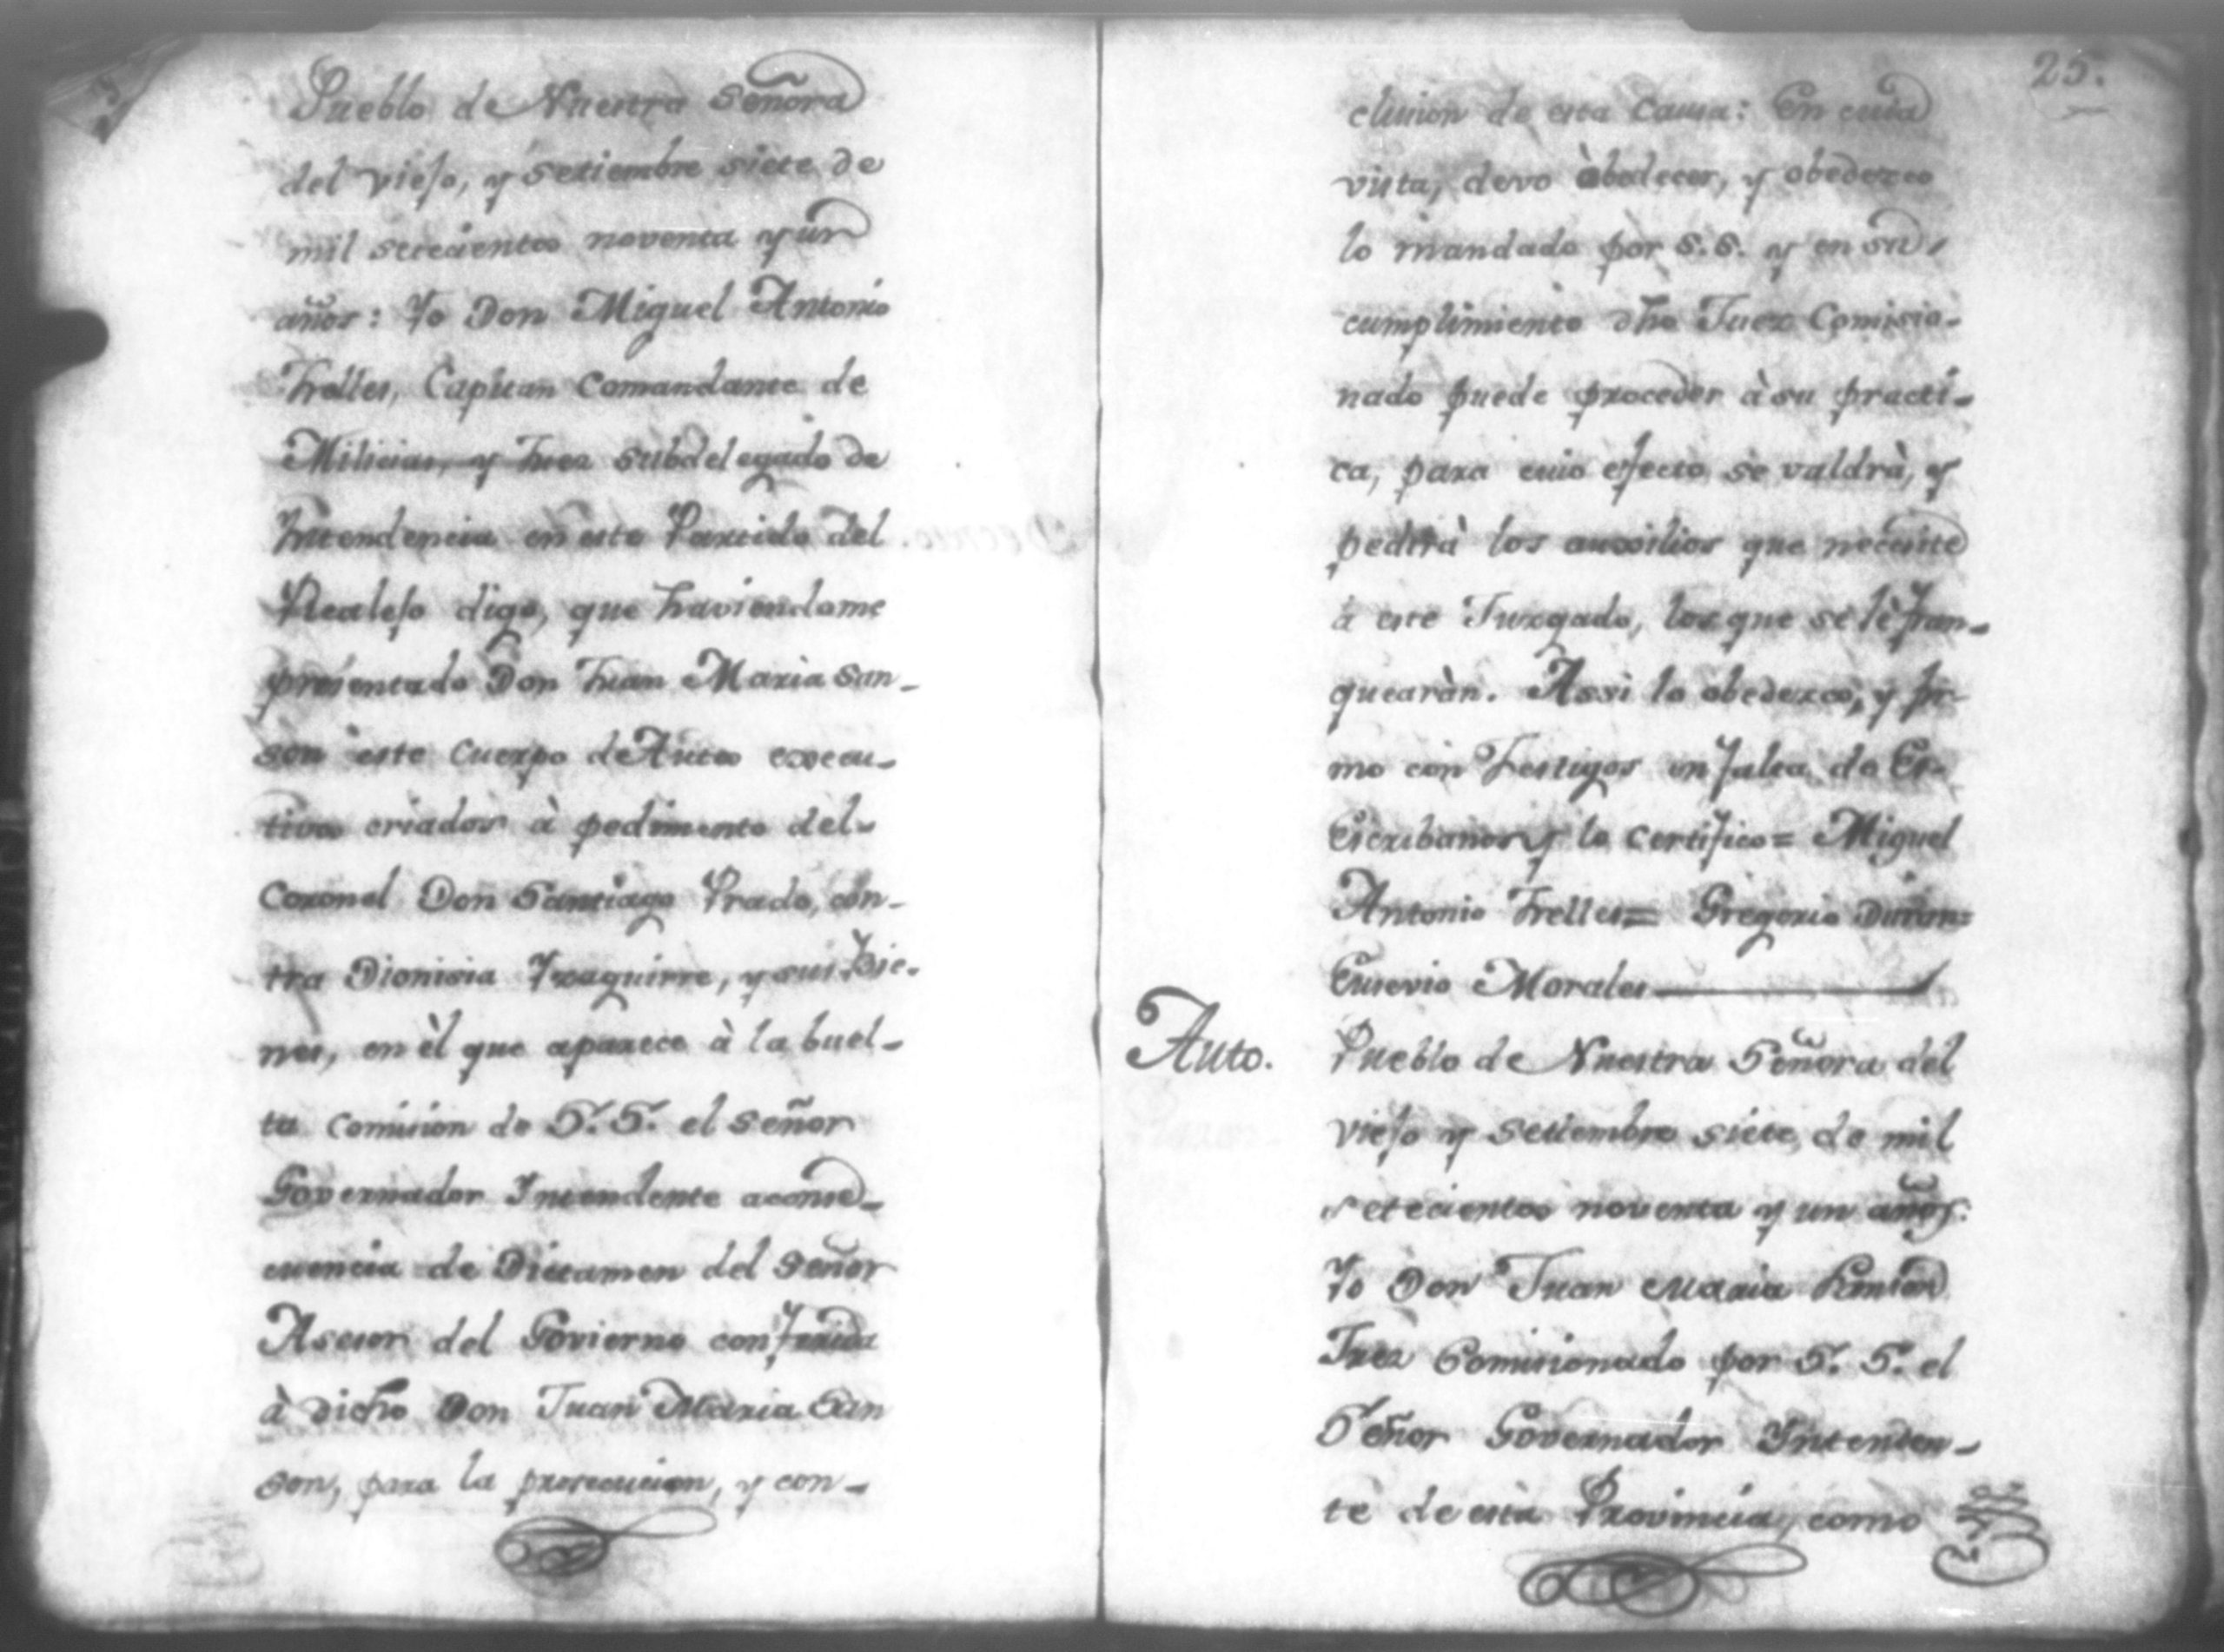 Pueblo de Nuestra Señora
del viejo, y setiembre siete de
mil setecientos noventa y un
años: Yo Don Miguel Antonio
Trelles, Capitan Comandante de
Milicias, y Juez subdelegado de
Intendencia en este Partido del
Realejo digo, que haviendome
presentado Don Juan Maria San-
son este Cuerpo de Autos execu-
tivos criados à pedimento del
Coronel Don Santiago Prado, con-
tra Dionisia Yzaguirre, y sus Bie-
nes, en èl que aparece à la buel-
ta comision de S. S. el señor
Governador Intendente aconse-
cuencia de Dictamen del señor
Asesor del Govierno conferida
à dicho Don Juan Maria San
son, para la prosecucion, y con-
25.
clusion de esta causa: En cuia
vista, devo àbedecer, y obedezco
lo mandado por S. S. y en su
cumplimiento dho Juez Comisio-
nado puede proceder à su practi-
ca, para cuio efecto se valdrà, y
pedirà los auxilios que necesite
à este Juzgado, los que se lè fran-
quearàn. Assi lo obedezco, y fir-
mo con Testigos en falta de Es-
Escribanos y lo certifico= Miguel
Antonio Trelles= Gregorio Duran=
Eusevio Morales
Auto. Pueblo de Nuestra Señora del
viejo y setiembre siete de mil
setecientos noventa y un años.
Yo Don Juan Maria
Juez Comisionado por S. S. el
Señor Governador Intenden-
te de esta Provincia, como